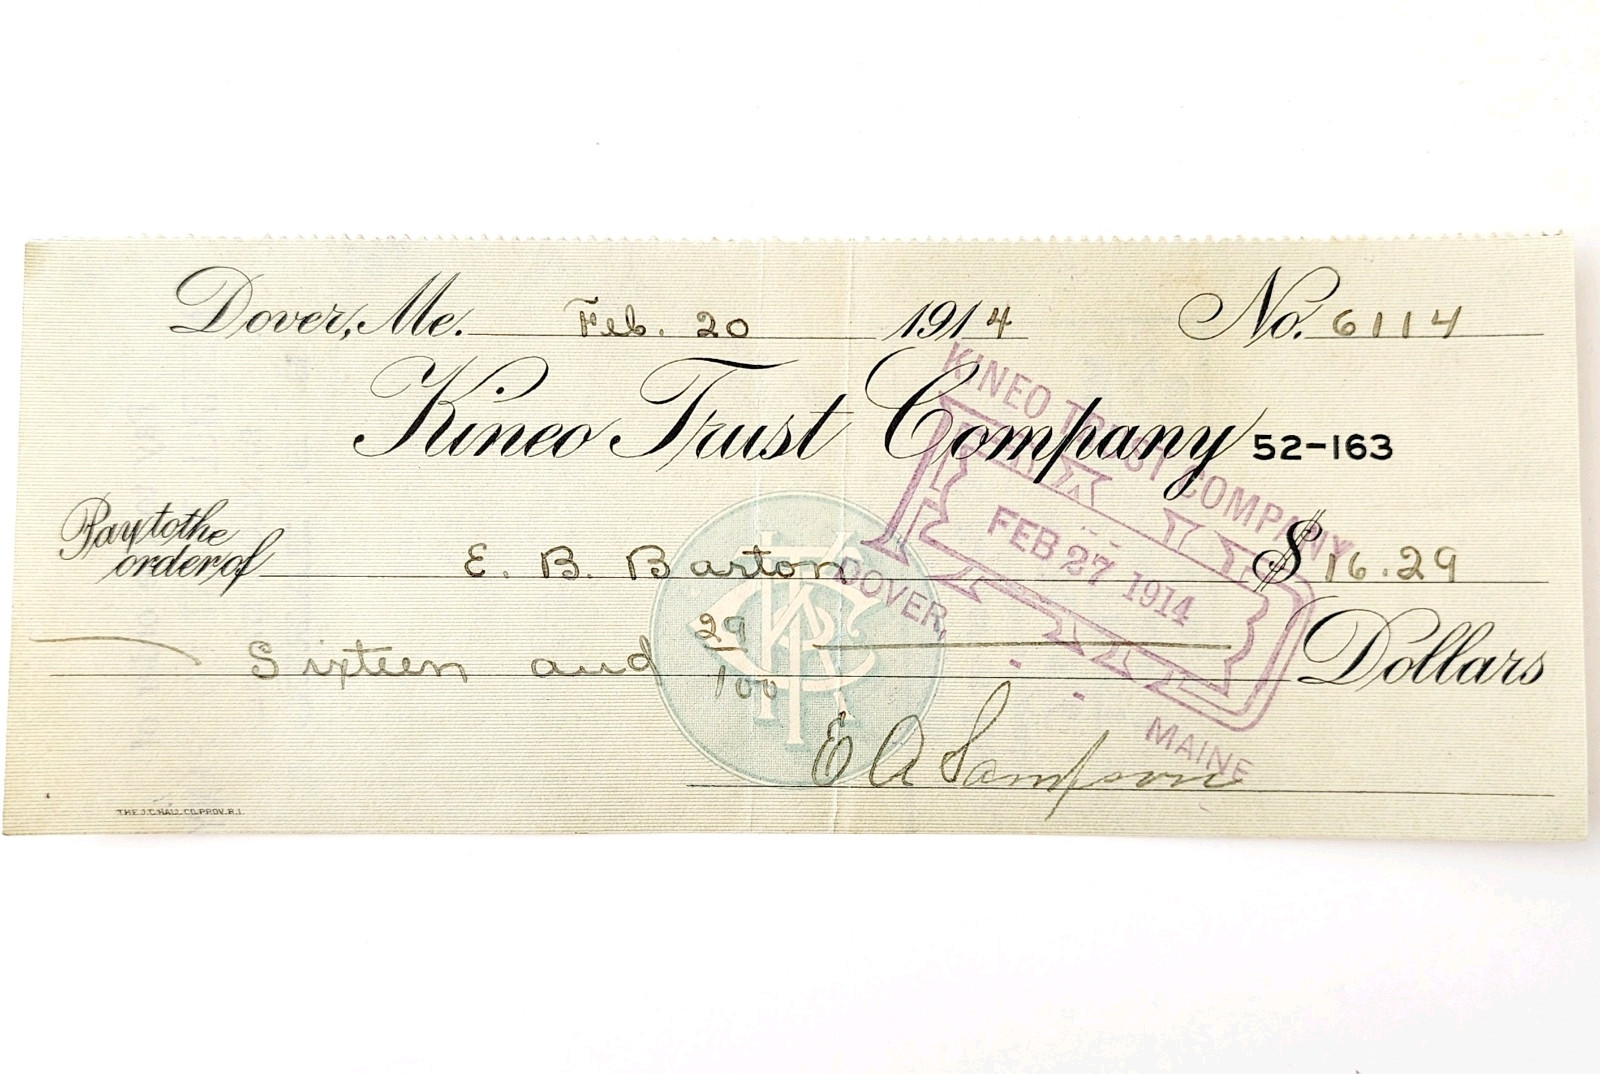 Dover, Me. Feb. 20 1914 No. 6114
Kineo Trust Company 52-163
Pay to the
order of E. B. Barton $16.29
Sixteen and 29/100 Dollars
E A Sampson
KINEO TRUST COMPANY
PAID
FEB 27 1914
DOVER,
MAINE
KTCo
THE J.C. HALL CO. PROV. R.I.